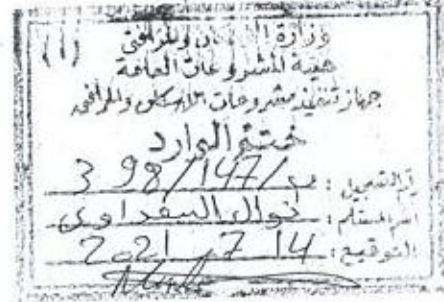 (1)
وزارة الإسكان والمرافق
هيئة المشروعات العامة
جهاز تنفيذ مشروعات الإسكان والمرافق
ختم الوارد
رقم التسجيل : ب/147/398
اسم المستلم : نوال البغداوي
التوقيع : 14 7 2021